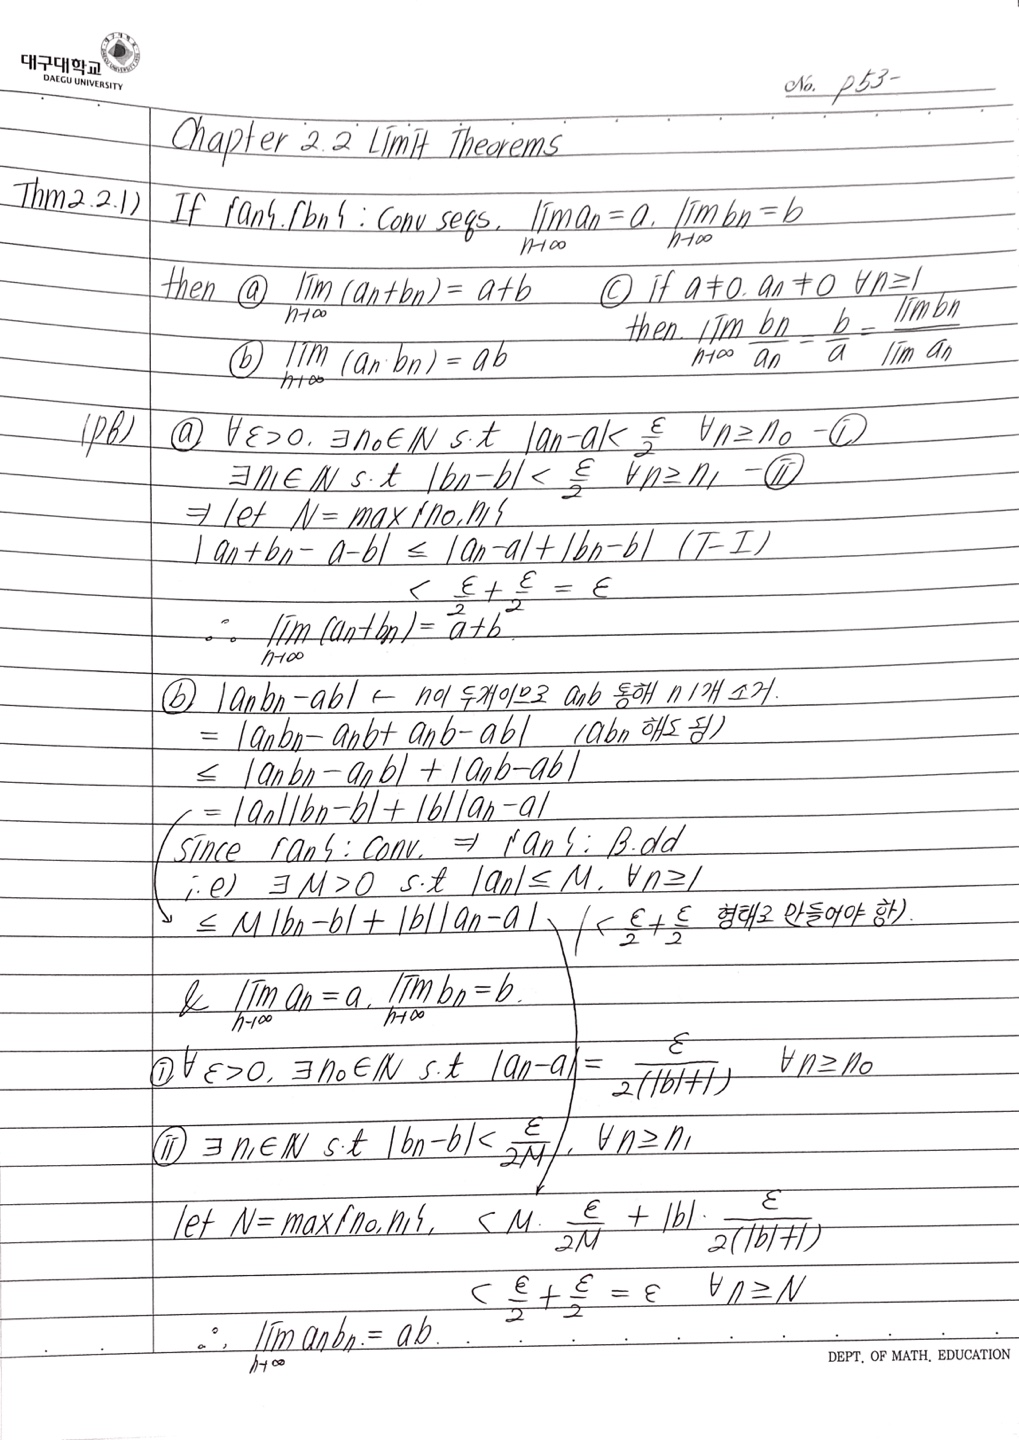 대구대학교
DAEGU UNIVERSITY
No. p53-
Chapter 2.2 Limit Theorems
Thm2.2.1) If {an}, {bn} : Conv seqs, lim_{n→∞} an = a, lim_{n→∞} bn = b
then ⓐ lim_{n→∞} (an+bn) = a+b ⓒ if a≠0, an≠0 ∀n≥1
then lim_{n→∞} bn/an = b/a = lim bn / lim an
ⓑ lim_{n→∞} (an·bn) = ab
(pf) ⓐ ∀ε>0, ∃n0∈ℕ s.t |an-a| < ε/2 ∀n≥n0 -ⓘ
∃n1∈ℕ s.t |bn-b| < ε/2 ∀n≥n1 -ⓘⓘ
⇒ let N = max{n0,n1}
|an+bn-a-b| ≤ |an-a|+|bn-b| (T-I)
< ε/2 + ε/2 = ε
∴ lim_{n→∞} (an+bn) = a+b
ⓑ |anbn-ab| ← n이 두개이므로 anb 통해 n 1개 소거.
= |anbn-anb+anb-ab| (abn 해도 됨)
≤ |anbn-anb| + |anb-ab|
= |an||bn-b| + |b||an-a|
Since {an} : Conv. ⇒ {an} : B.dd
i.e) ∃M>0 s.t |an| ≤ M, ∀n≥1
≤ M|bn-b| + |b||an-a| (< ε/2 + ε/2 형태로 만들어야 함).
& lim_{n→∞} an = a, lim_{n→∞} bn = b.
ⓘ ∀ε>0, ∃n0∈ℕ s.t |an-a| = ε/2(|b|+1) ∀n≥n0
ⓘⓘ ∃n1∈ℕ s.t |bn-b| < ε/2M, ∀n≥n1
let N = max{n0,n1}, < M · ε/2M + |b| · ε/2(|b|+1)
< ε/2 + ε/2 = ε ∀n≥N
∴ lim_{n→∞} anbn = ab.
DEPT. OF MATH. EDUCATION